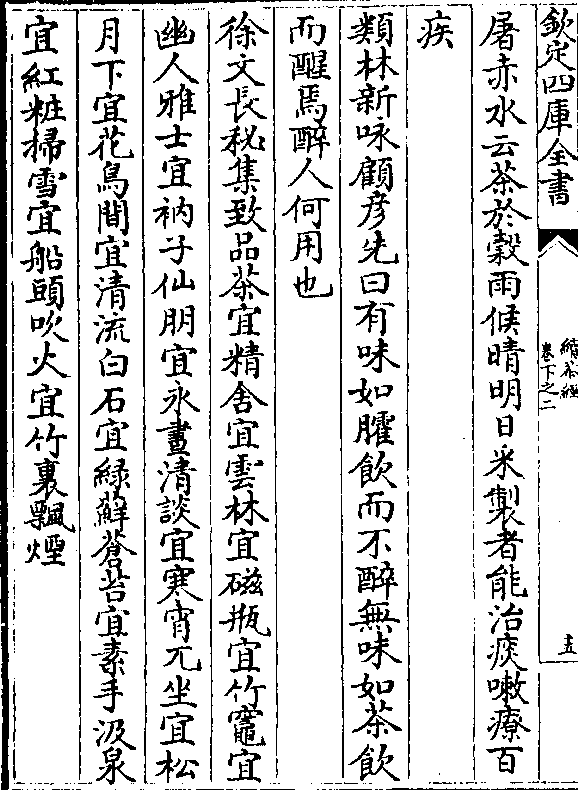 欽定四庫全書
續茶經
卷下之二
五
屠赤水云茶於穀雨候晴明日采製者能治痰嗽療百
疾
類林新咏顧彦先曰有味如臛飲而不醉無味如茶飲
而醒焉醉人何用也
徐文長秘集致品茶宜精舍宜雲林宜磁瓶宜竹竈宜
幽人雅士宜衲子仙朋宜永晝清談宜寒宵兀坐宜松
月下宜花鳥間宜清流白石宜緑蘚蒼苔宜素手汲泉
宜紅粧掃雪宜船頭吹火宜竹裏飄煙